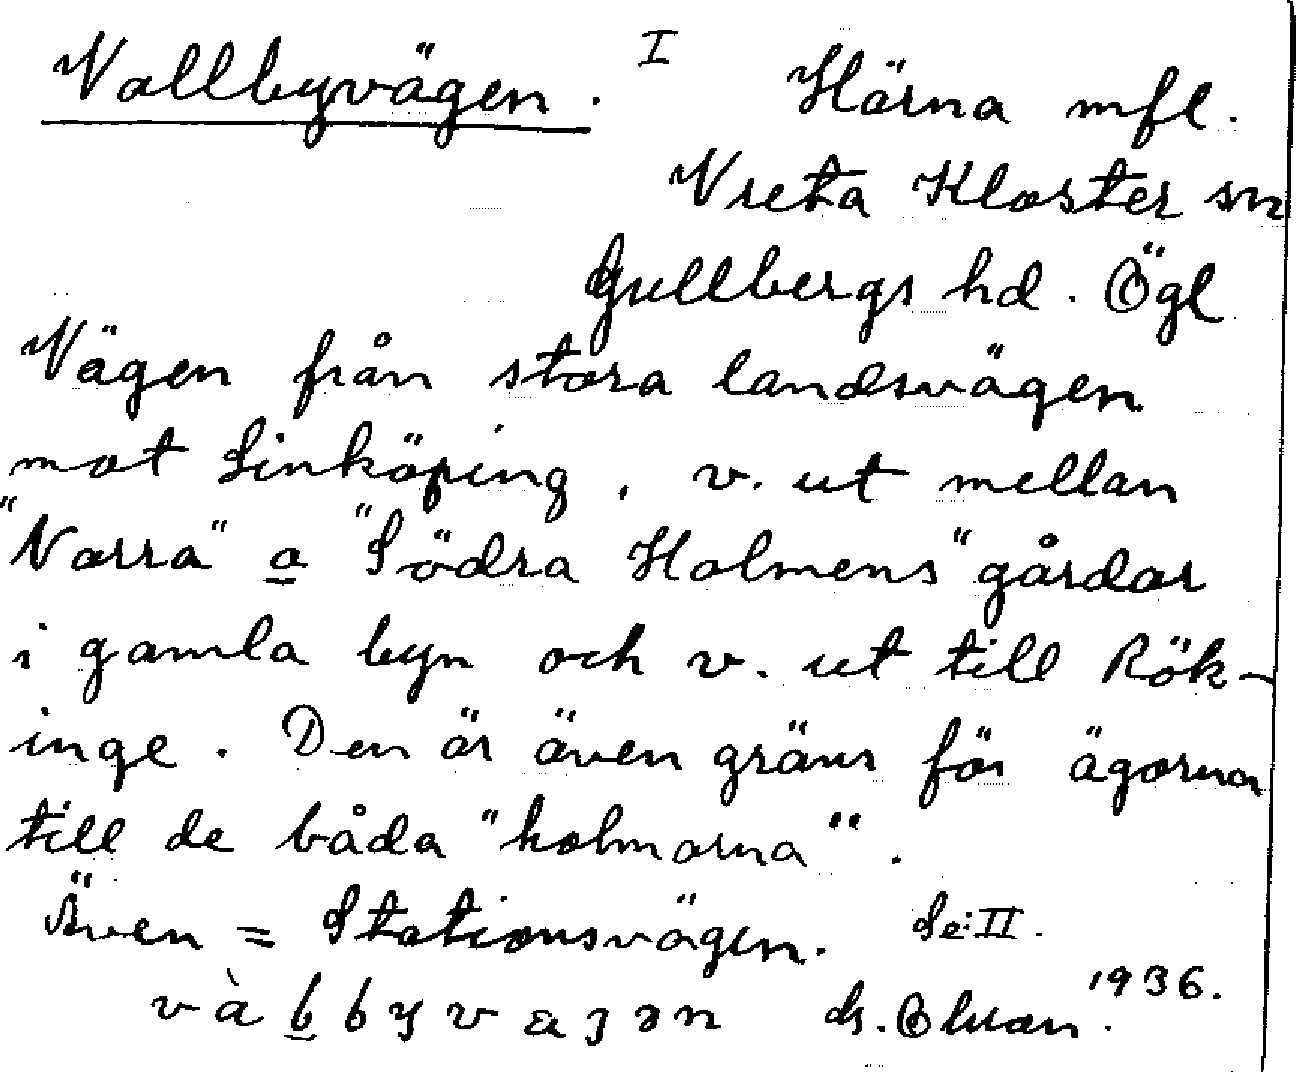 Vallbyvägen. I Härna mfl.
Vreta Kloster sn
Gullbergs hd. Ögl
Vägen från stora landsvägen
mot Linköping, v. ut mellan
"Norra" o "Södra Holmens" gårdar
i gamla byn och v. ut till Rök-
inge. Den är även gräns för ägorna
till de båda "holmarna".
Även = Stationsvägen. Se: II.
1936.